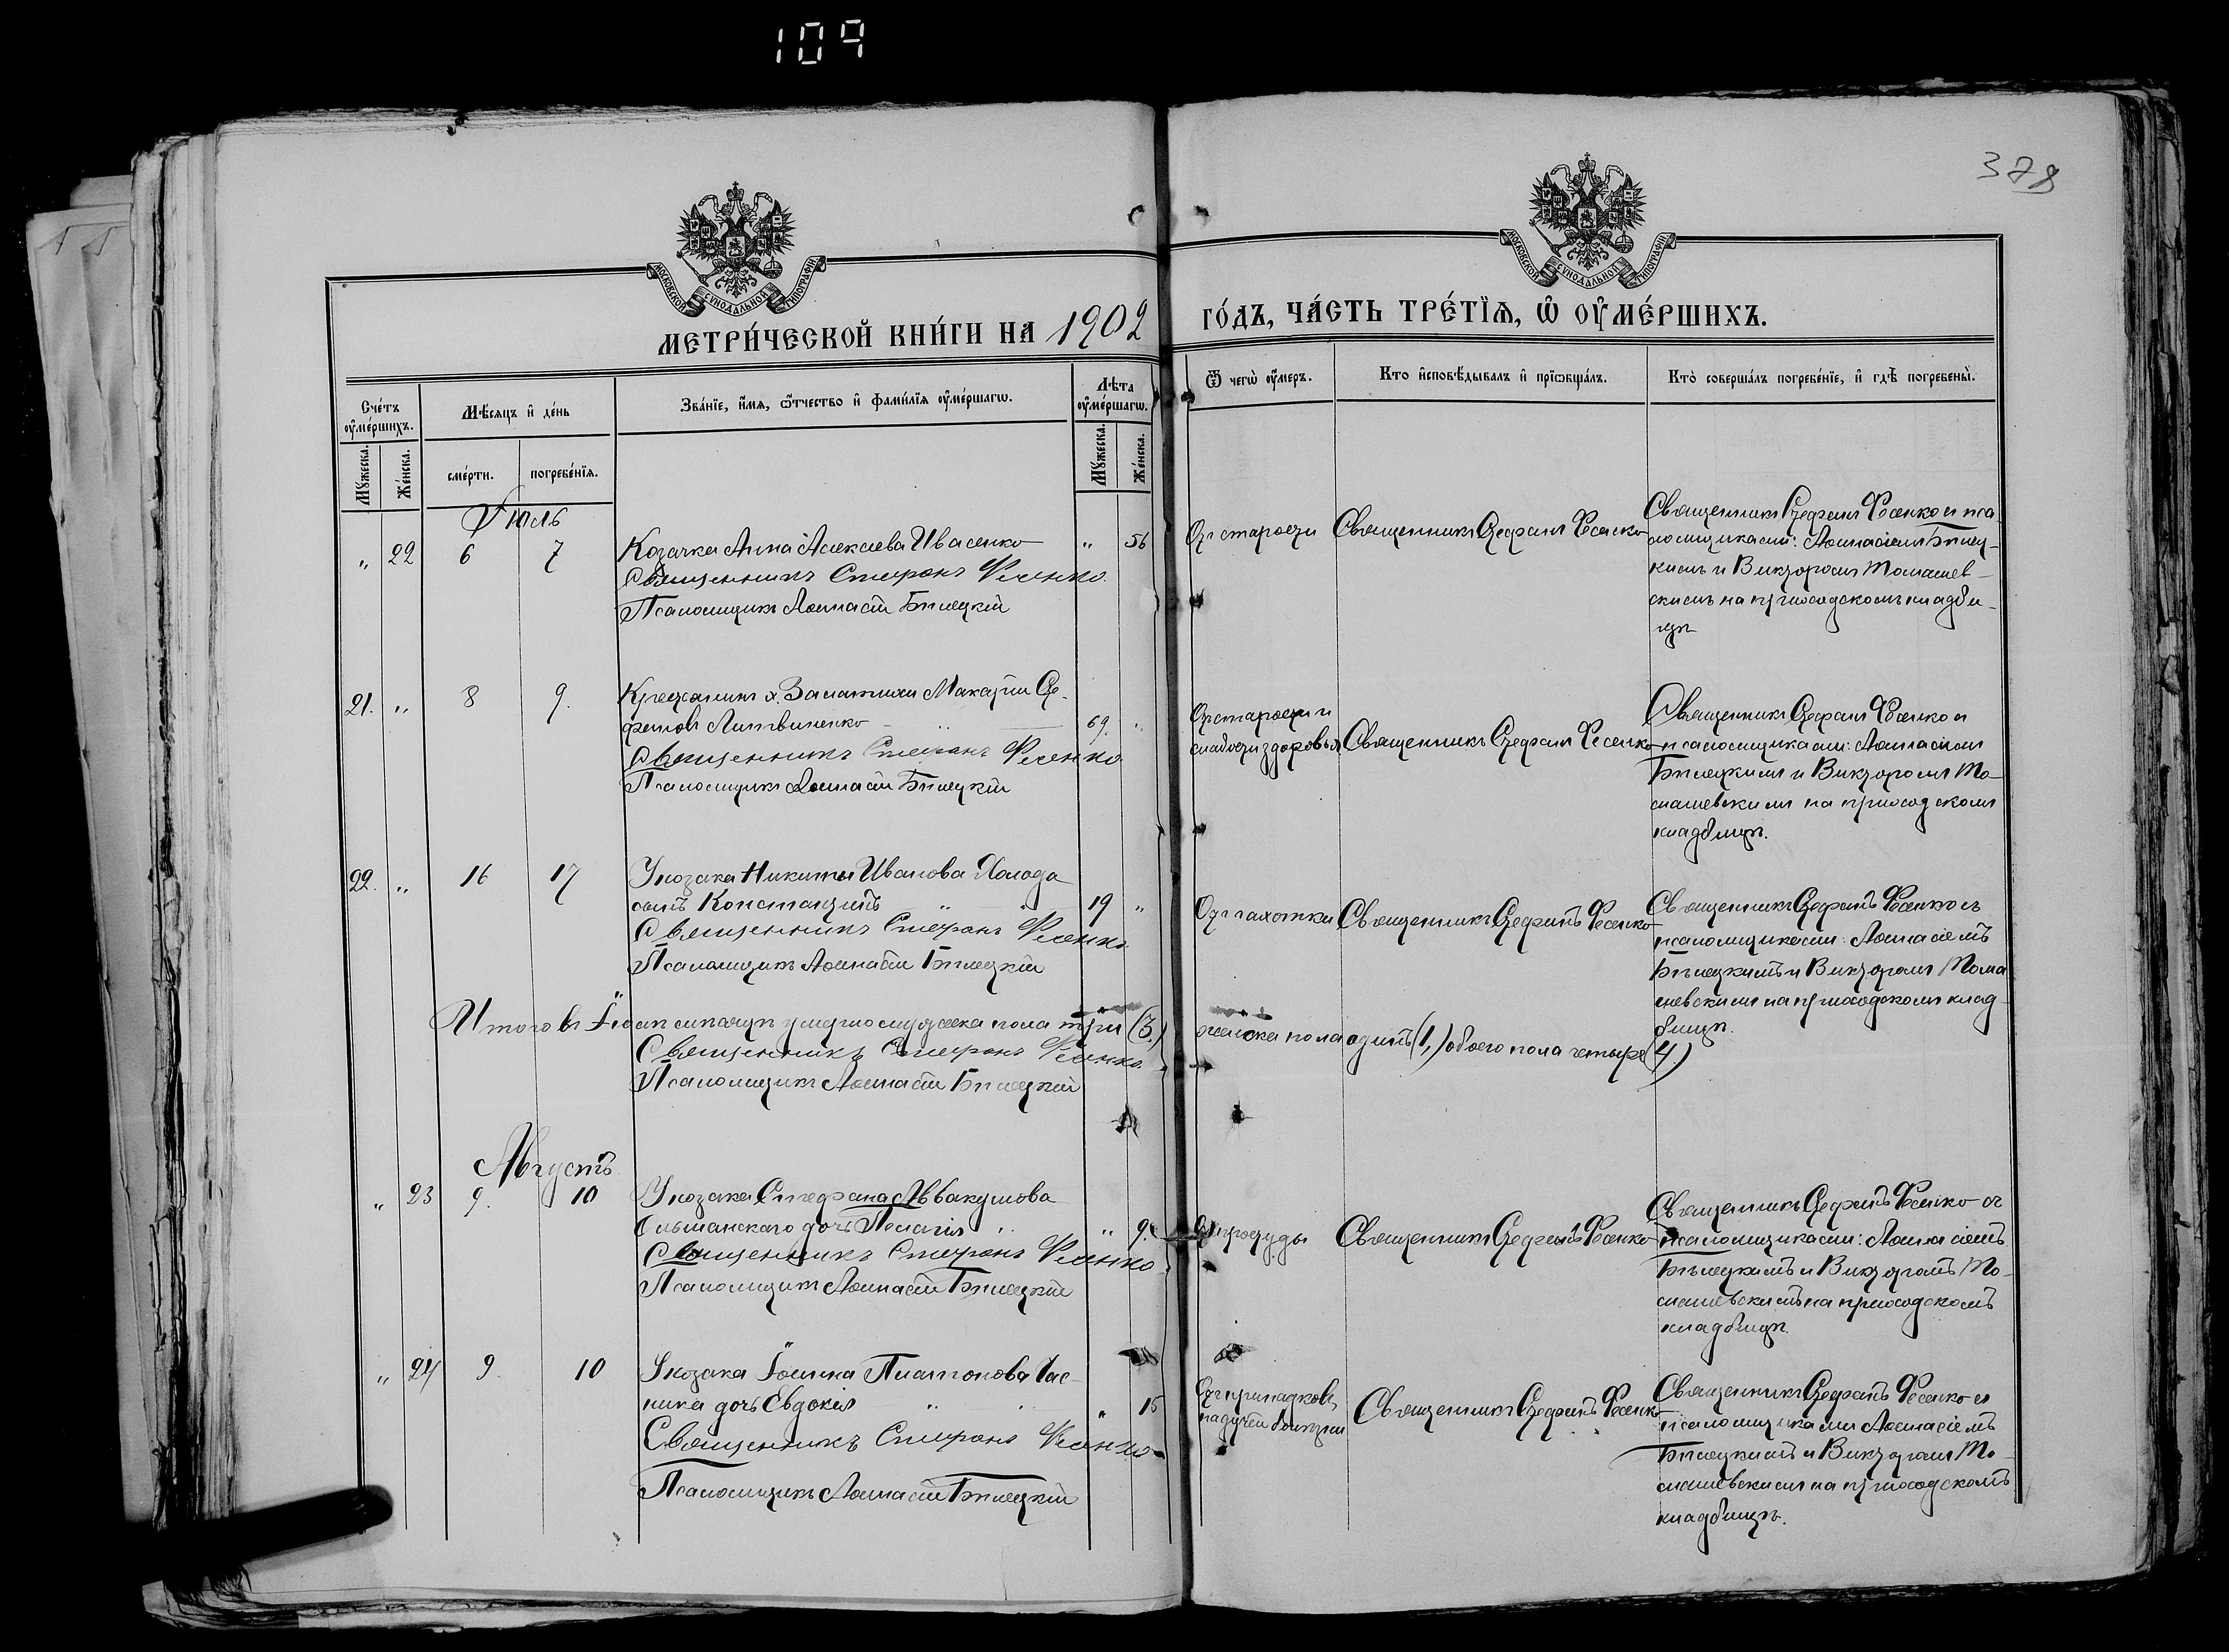 109
378
МОСКОВСКОЙ СѴНОДАЛЬНОЙ ТИПОГРАФІИ
МОСКОВСКОЙ СѴНОДАЛЬНОЙ ТИПОГРАФІИ
МЕТРИ́ЧЕСКОЙ КНИ́ГИ НА 1902
ГО́ДЪ, ЧА́СТЬ ТРЕ́ТЇѦ, Ѡ҆ ОУ҆МЕ́РШИХЪ.
Сче́тъ оу҆ме́ршихъ.
Мꙋ́жеска.
Же́нска.
Мѣ́сяцъ и҆ де́нь
сме́рти.
погребе́нїѧ.
Зва́нїе, и҆́мѧ, ѻ҆́тчество и҆ фами́лїѧ оу҆ме́ршагѡ.
Лѣ́та оу҆ме́ршагѡ.
Мꙋ́жеска.
Же́нска.
Ѿ чегѡ̀ оу҆́меръ.
Кто и҆сповѣ́дывалъ и҆ прїѡбща́лъ.
Кто̀ соверша́лъ погребе́нїе, и҆ гдѣ̀ погребены̀.
Іюль
" 22 6 7
Козачка Анна Алексіева Ивасенко
Священникъ Стефанъ Фесенко
Псаломщикъ Аѳанасій Бѣлецкій
" 56
Отъ старости
Священникъ Стефанъ Фесенко
Священникъ Стефанъ Фесенко и пса-
ломщиками: Аѳанасіемъ Бѣлец-
кимъ и Викторомъ Томашев-
скимъ на приходскомъ кладби-
щѣ
21. " 8 9.
Макарій Сте-
фановъ Литвиненко
Священникъ Стефанъ Фесенко
Псаломщикъ Аѳанасій Бѣлецкій
69. "
Отъ старости и
слабости здоровья
Священникъ Стефанъ Фесенко
Священникъ Стефанъ Фесенко и
псаломщиками: Аѳанасіемъ
Бѣлецкимъ и Викторомъ То-
машевскимъ на приходскомъ
кладбищѣ.
22. " 16 17
У козака Никиты Иванова Холода
сынъ Константинъ
Священникъ Стефанъ Фесенко
Псаломщикъ Аѳанасій Бѣлецкій
19 "
Отъ чахотки
Священникъ Стефанъ Фесенко
Священникъ Стефанъ Фесенко съ
псаломщиками: Аѳанасіемъ
Бѣлецкимъ и Викторомъ Тома
шевскимъ на приходскомъ клад-
бищѣ.
Итого въ Іюлѣ мѣсяцѣ умерло мужеска пола три (3.) женска пола одинъ (1,) обоего пола четыре (4)
Священникъ Стефанъ Фесенко
Псаломщикъ Аѳанасій Бѣлецкій
Августъ
" 23 9. 10
У козака Стефана Аввакумова
Ольшанскаго дочь Пелагія
Священникъ Стефанъ Фесенко
Псаломщикъ Аѳанасій Бѣлецкій
" 9.
Отъ простуды
Священникъ Стефанъ Фесенко
Священникъ Стефанъ Фесенко съ
псаломщиками: Аѳанасіемъ
Бѣлецкимъ и Викторомъ То-
машевскимъ на приходскомъ
кладбищѣ.
" 24 9. 10
У козака Іоанна Платонова
дочь Евдокія
Священникъ Стефанъ Фесенко
Псаломщикъ Аѳанасій Бѣлецкій
" 15
Отъ припадковъ
падучей болѣзни
Священникъ Стефанъ Фесенко
Священникъ Стефанъ Фесенко и
псаломщиками Аѳанасіемъ
Бѣлецкимъ и Викторомъ То-
машевскимъ на приходскомъ
кладбищѣ.